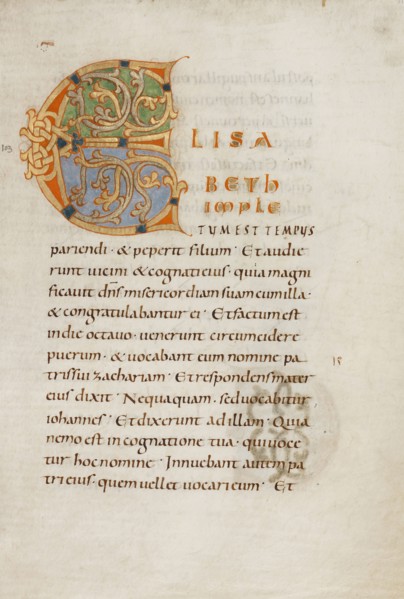 ELISA
BETH
IMPLE
TUM EST TEMPUS
pariendi · & peperit filium · Et audie
runt uicini & cognati eius · quia magni
ficauit dns misericordiam suam cum illa ·
& congratulabantur ei · Et factum est
in die octauo · uenerunt circumcidere
puerum · & uocabant eum nomine pa
tris sui zachariam · Et respondens mater
eius dixit · Nequaquam · sed uocabitur
iohannes · Et dixerunt ad illam · Quia
nemo est in cognatione tua · qui uoce
tur hoc nomine · Innuebant autem pa
tri eius · quem uellet uocari eum · Et
15